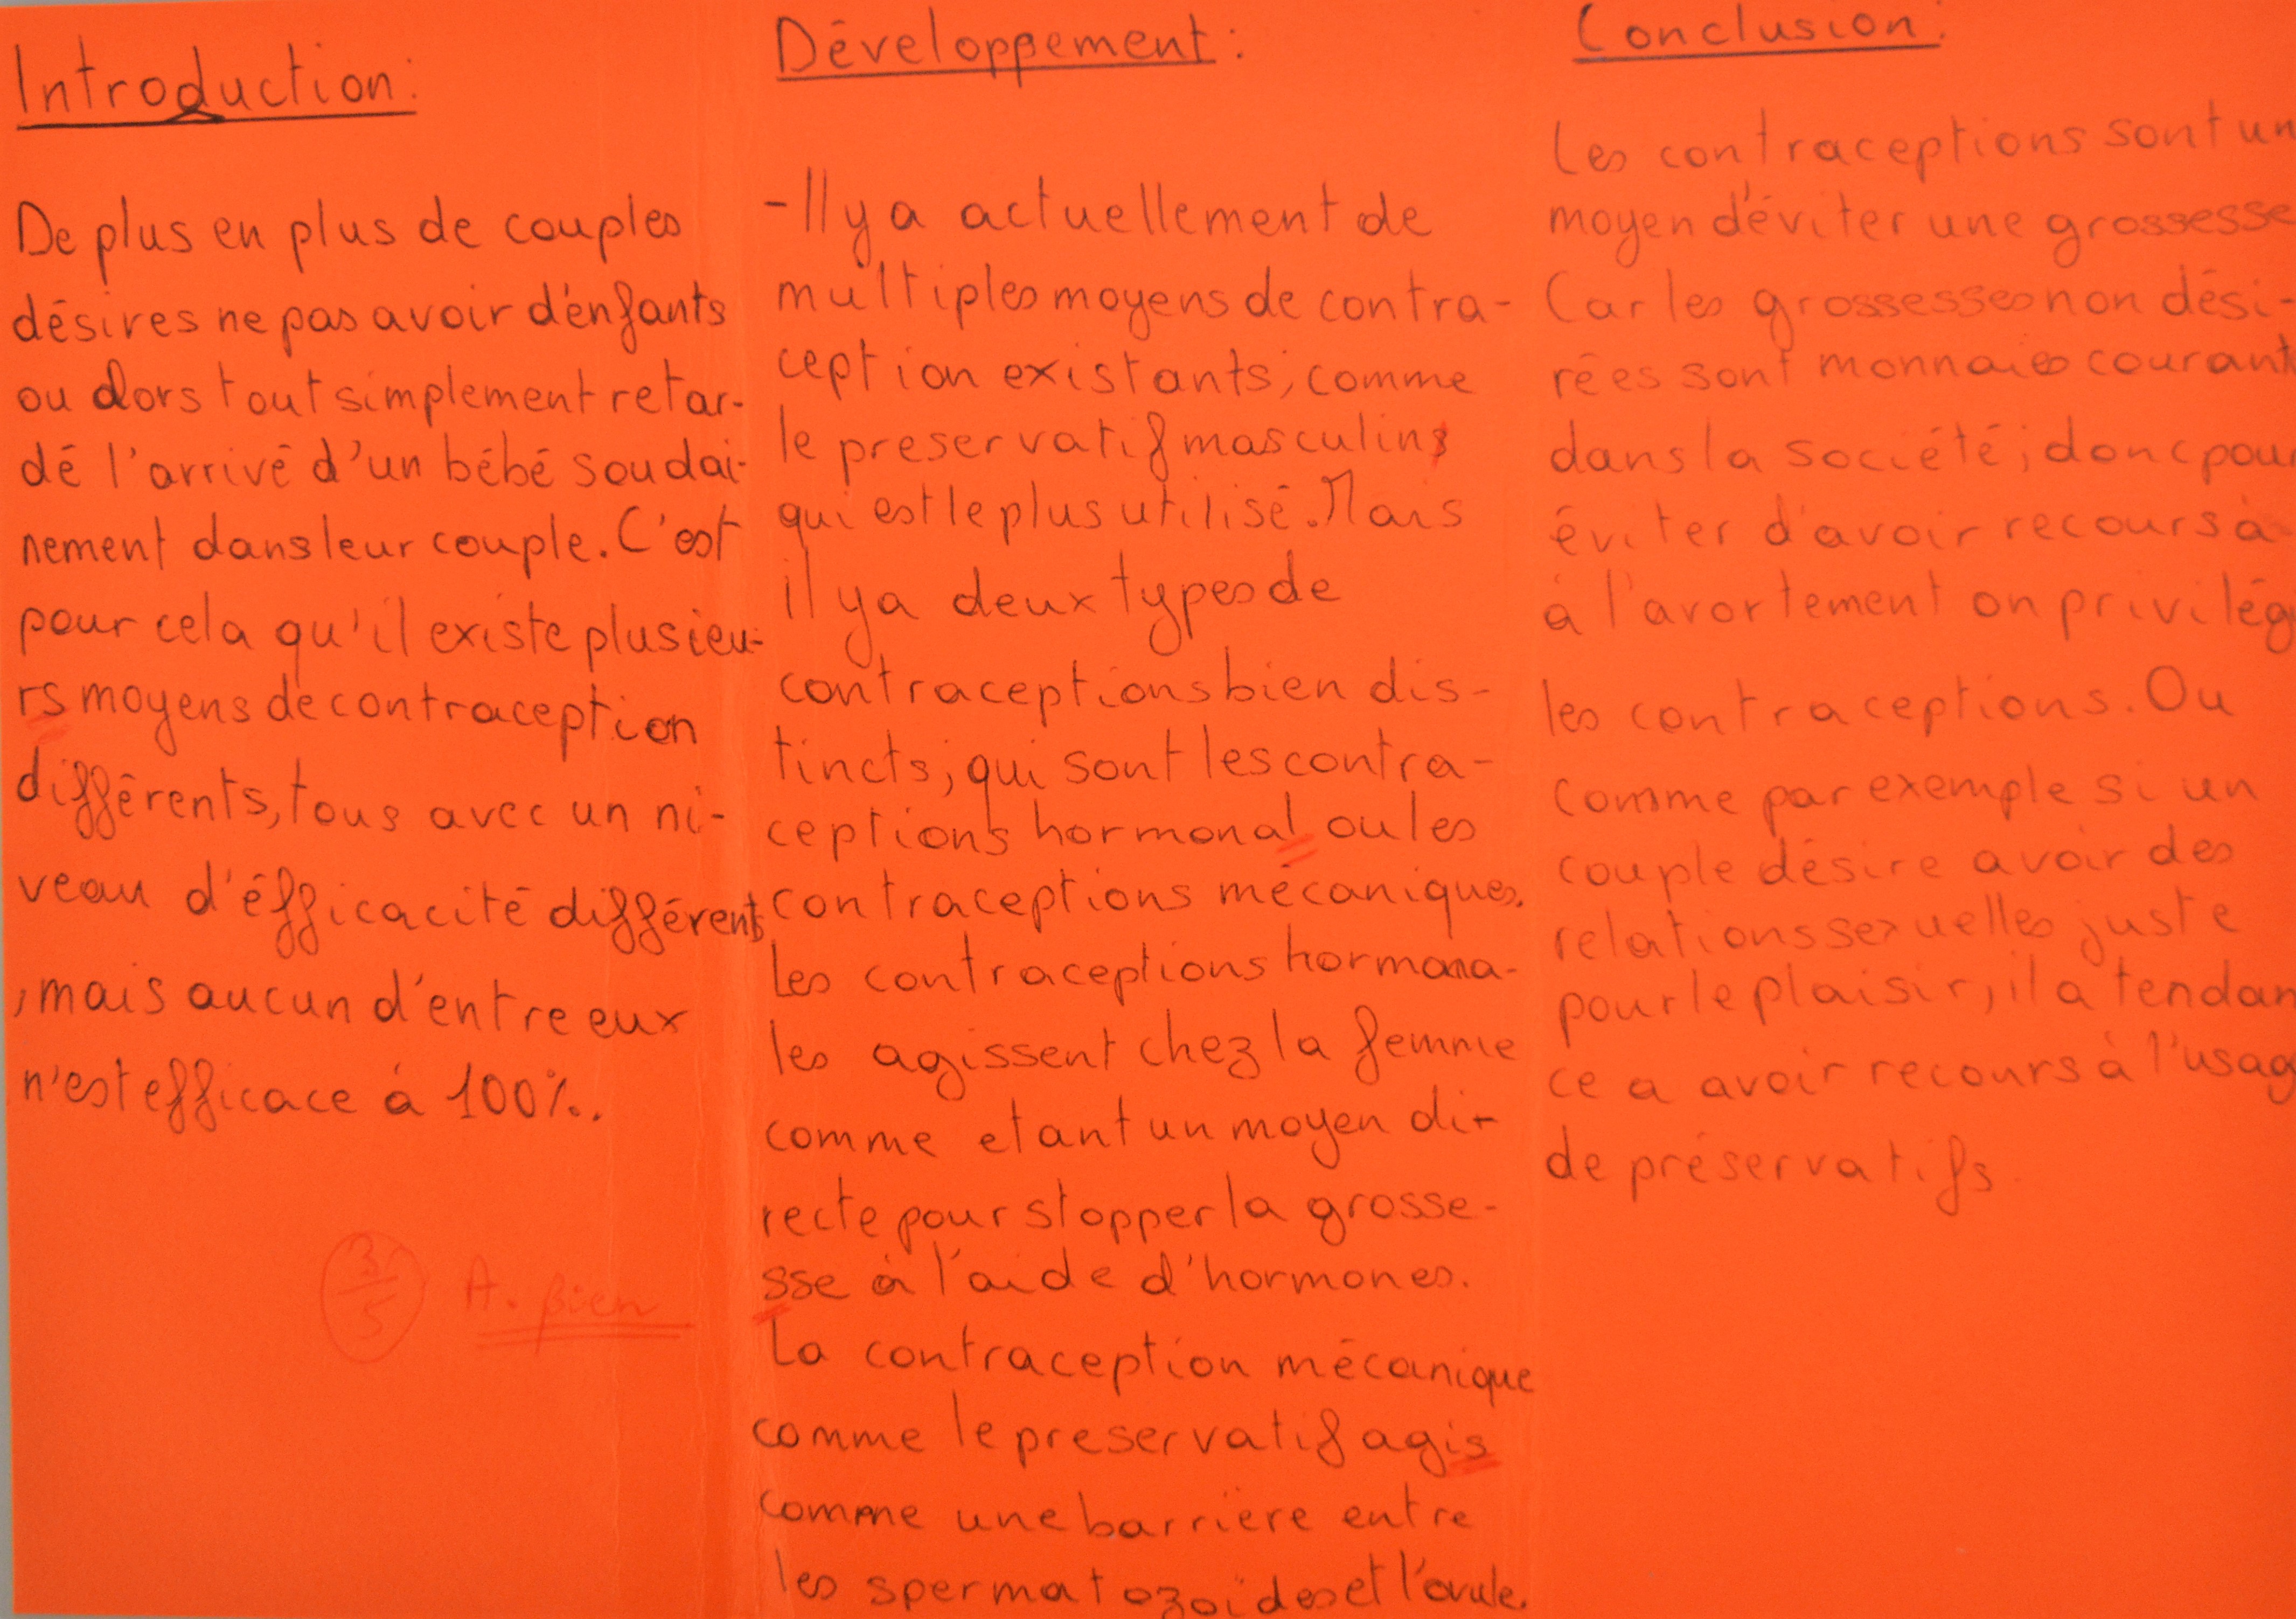 Introduction:
De plus en plus de couples
désires ne pas avoir d'énfants
ou alors tout simplement retar-
dé l'arrivé d'un bébé soudai-
nement dans leur couple. C'est
pour cela qu'il existe plusieu-
rs moyens de contraception
différents, tous avec un ni-
veau d'éfficacité différents
, mais aucun d'entre eux
n'est efficace à 100%.
3/5 A. Bien
Développement:
- Il y a actuellement de
multiples moyens de contra-
ception existants, comme
le preservatif masculins
qui est le plus utilisé. Mais
il y a deux types de
contraceptions bien dis-
tincts; qui sont les contra-
ceptions hormonal ou les
contraceptions mécaniques.
Les contraceptions hormona-
les agissent chez la femme
comme etant un moyen di-
recte pour stopper la grosse-
sse à l'aide d'hormones.
La contraception mécanique
comme le preservatif agis
comme une barrière entre
les spermatozoïdes et l'ovule.
Conclusion:
Les contraceptions sont un
moyen d'éviter une grossesse
Car les grossesses non dési-
rées sont monnaies courant
dans la société; donc pour
éviter d'avoir recours à
à l'avortement on privilég
les contraceptions. Ou
comme par exemple si un
couple désire avoir des
relations sexuelles juste
pour le plaisir, il a tendan
ce a avoir recours à l'usag
de préservatifs.